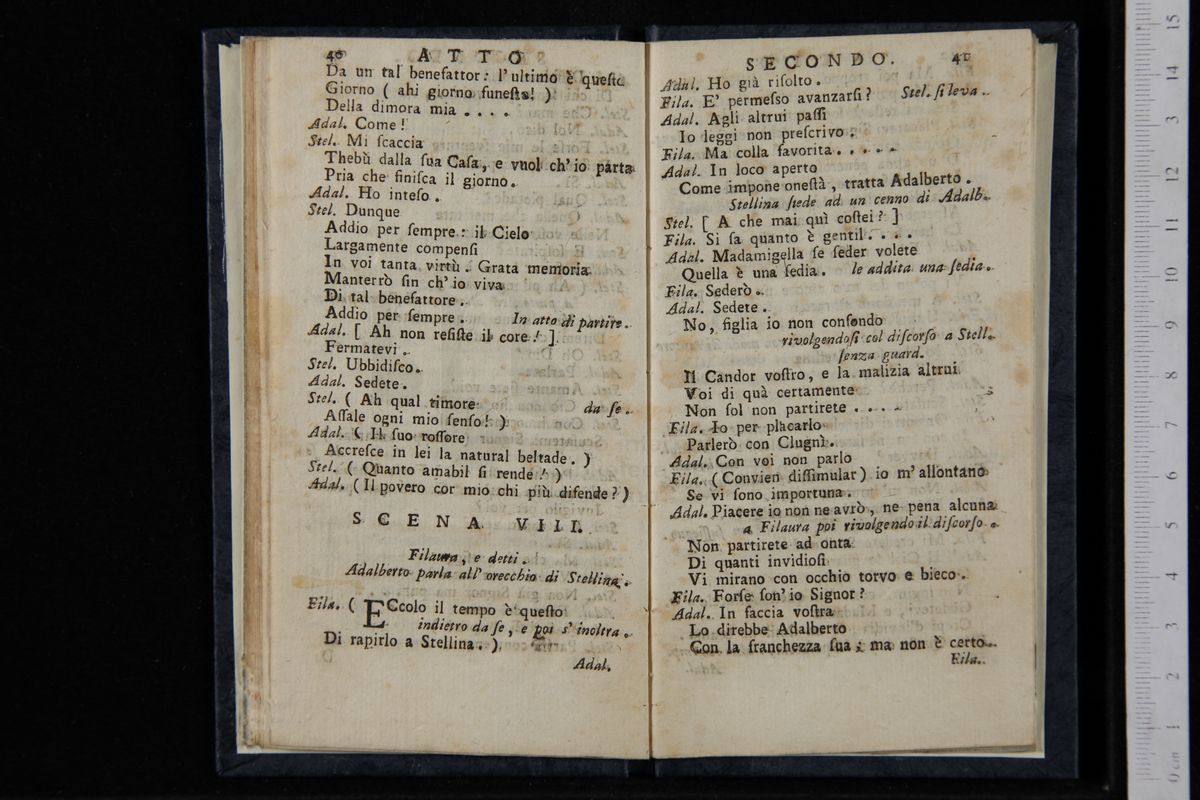 40 ATTO
Da un tal benefattor: l'ultimo è questo
Giorno ( ahi giorno funesto! )
Della dimora mia ....
Adal. Come!
Stel. Mi scaccia
Thebù dalla sua Casa, e vuol ch'io parta
Pria che finisca il giorno.
Adal. Ho inteso.
Stel. Dunque
Addio per sempre: il Cielo
Largamente compensi
In voi tanta virtù. Grata memoria
Manterrò fin ch'io viva
Di tal benefattore.
Addio per sempre. In atto di partire.
Adal. [ Ah non resiste il core! ]
Fermatevi.
Stel. Ubbidisco.
Adal. Sedete.
Stel. ( Ah qual timore da se.
Assale ogni mio senso! )
Adal. ( Il suo rossore
Accresce in lei la natural beltade. )
Stel. ( Quanto amabil si rende! )
Adal. ( Il povero cor mio chi più difende? )
SCENA VIII.
Filaura, e detti.
Adalberto parla all'orecchio di Stellina.
Fila. ( ECcolo il tempo è questo
indietro da se, e poi s'inoltra.
Di rapirlo a Stellina. )
Adal.
SECONDO. 41
Adal. Ho già risolto.
Fila. E' permesso avanzarsi? Stel. si leva.
Adal. Agli altrui passi
Io leggi non prescrivo.
Fila. Ma colla favorita.....
Adal. In loco aperto
Come impone onestà, tratta Adalberto.
Stellina siede ad un cenno di Adalb.
Stel. [ A che mai quì costei? ]
Fila. Si sa quanto è gentil....
Adal. Madamigella se seder volete
Quella è una sedia. le addita una sedia.
Fila. Sederò.
Adal. Sedete.
No, figlia io non confondo
rivolgendosi col discorso a Stell.
senza guard.
Il Candor vostro, e la malizia altrui
Voi di quà certamente
Non sol non partirete ....
Fila. Io per placarlo
Parlerò con Clugnì.
Adal. Con voi non parlo
Fila. ( Convien dissimular ) io m'allontano
Se vi sono importuna.
Adal. Piacere io non ne avrò, ne pena alcuna
a Filaura poi rivolgendo il discorso.
Non partirete ad onta
Di quanti invidiosi
Vi mirano con occhio torvo e bieco.
Fila. Forse son'io Signor?
Adal. In faccia vostra
Lo direbbe Adalberto
Con la franchezza sua; ma non è certo.
Fila.
15
14
13
12
11
10
9
8
7
6
5
4
3
2
1
0 cm